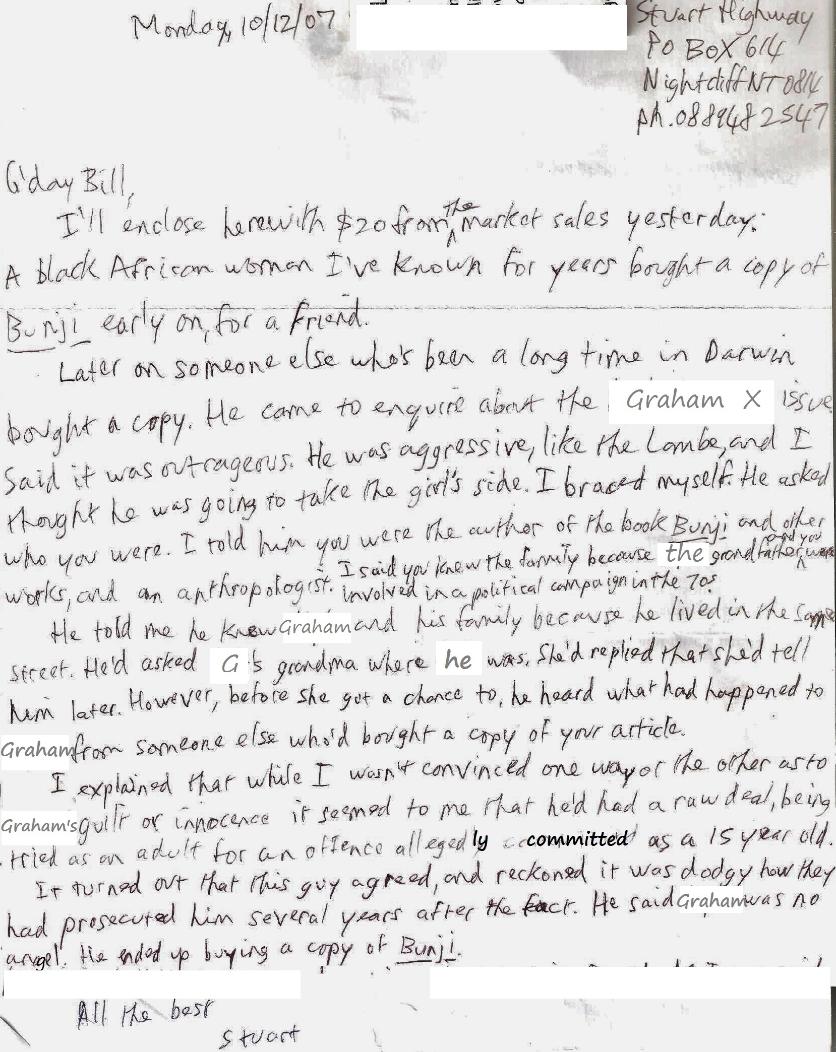 Monday, 10/12/07
Stuart Highway
PO BOX 614
Nightcliff NT 0814
ph. 088948 2547
G'day Bill,
I'll enclose herewith $20 from the market sales yesterday:
A black African woman I've known for years bought a copy of
Bunji early on, for a friend.
Later on someone else who's been a long time in Darwin
bought a copy. He came to enquire about the Graham X issue
Said it was outrageous. He was aggressive, like the Lambe, and I
thought he was going to take the girl's side. I braced myself. He asked
who you were. I told him you were the author of the book Bunji and other
works, and an anthropologist. I said you knew the family because the grandfather and you were
involved in a political campaign in the 70s
He told me he knew Graham and his family because he lived in the same
street. He'd asked G's grandma where he was. She'd replied that she'd tell
him later. However, before she got a chance to, he heard what had happened to
Graham from someone else who'd bought a copy of your article.
I explained that while I wasn't convinced one way or the other as to
Graham's guilt or innocence it seemed to me that he'd had a raw deal, being
tried as an adult for an offence allegedly committed as a 15 year old.
It turned out that this guy agreed, and reckoned it was dodgy how they
had prosecuted him several years after the fact. He said Graham was no
angel. He ended up buying a copy of Bunji.
All the best
Stuart